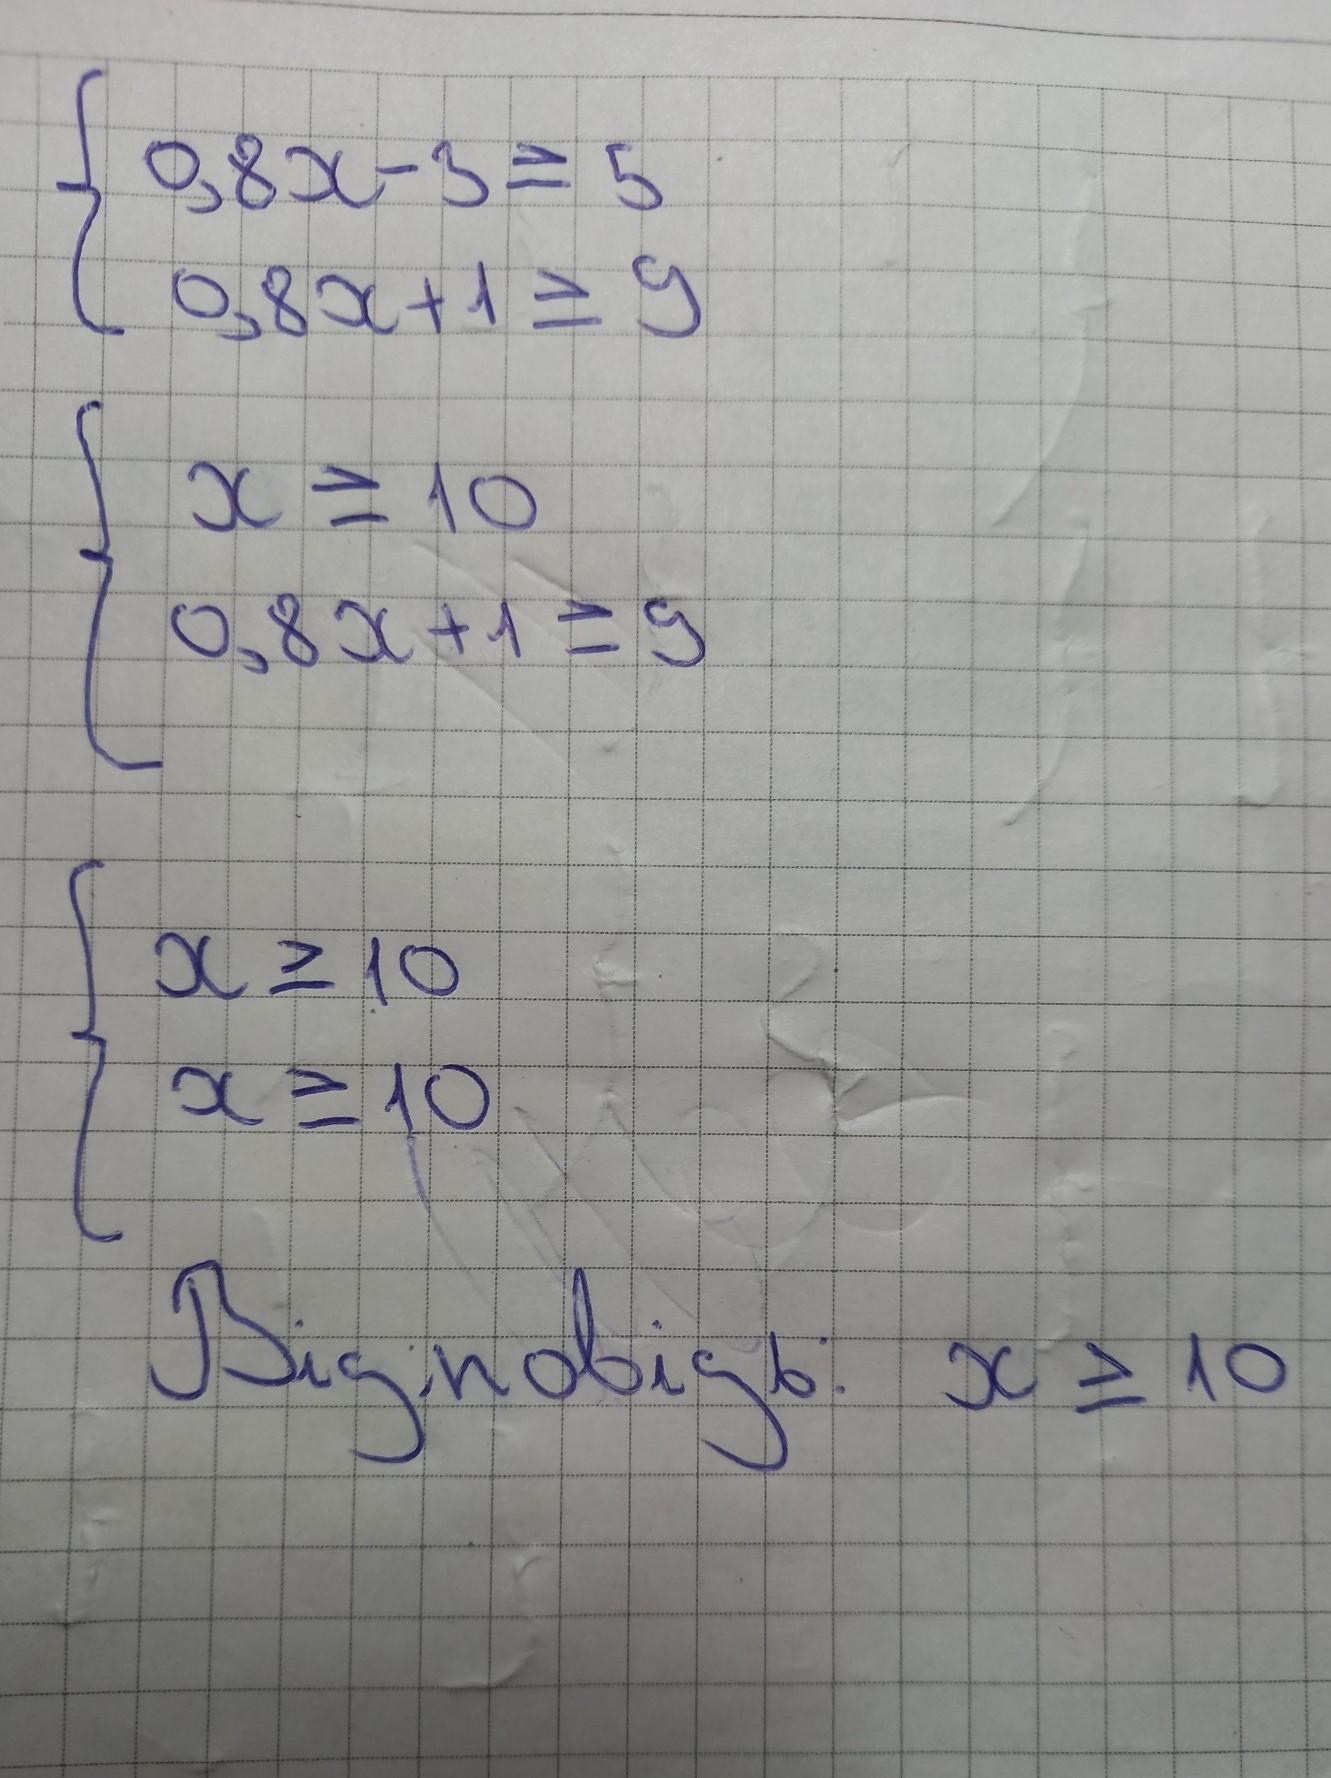 0,8x-3≥5
0,8x+1≥9
x≥10
0,8x+1≥9
x≥10
x≥10
Відповідь: x≥10